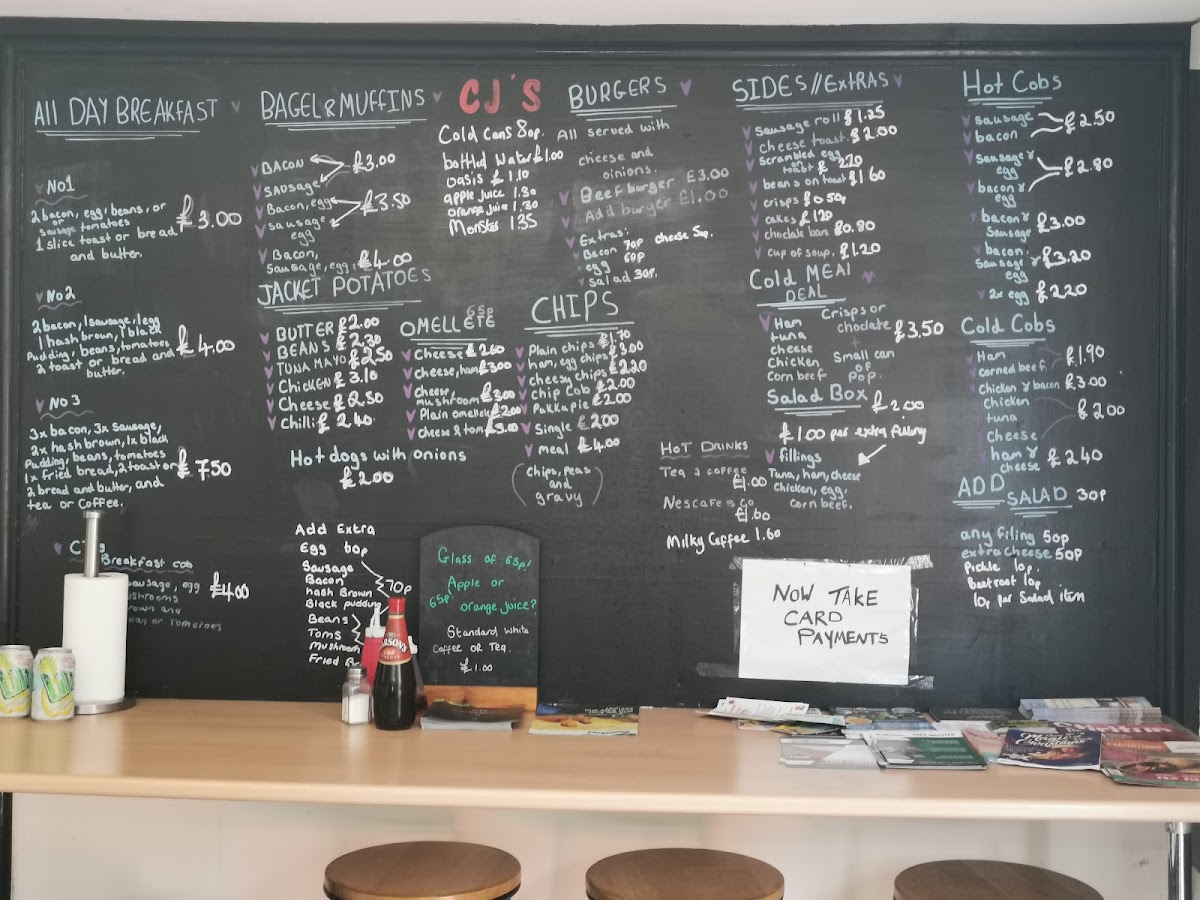 All DAY BREAKFAST
No1
2 bacon, egg, beans, or
or
sausage tomatoes
1 slice toast or bread
and butter.
£3.00
No2
2 bacon, 1 sausage, 1 egg
1 hash brown, 1 black
Pudding, beans, tomatoes
2 toast or bread and
butter.
£4.00
No 3
3x bacon, 3x Sausage,
2x hash brown, 1x black
Pudding, beans, tomatoes
1x fried bread, 2 toast or
2 bread and butter, and
tea or Coffee.
£7.50
Breakfast cob
sausage, egg
£4.00
or Tomatoes
BAGEL & MUFFINS
BACON
SAUSAGE
£3.00
Bacon, egg
sausage
egg
£3.50
Bacon,
Sausage, egg, £4.00
JACKET POTATOES
BUTTER £2.00
BEANS £2.30
TUNA MAYO £2.50
CHICKEN £3.10
Cheese £2.50
Chilli £2.40
Hot dogs with onions
£2.00
Add Extra
Egg 60p
Sausage
Bacon
hash Brown
Black pudding
70p
Beans
Toms
Mushroom
CJ'S
Cold Cans 80p.
bottled Water £1.00
oasis £1.10
apple juice 1.30
orange juice 1.30
Monster 1.35
OMELLETE
65p
Cheese £2.60
cheese, ham £3.00
Cheese,
mushroom £3.00
Plain omellete £2.00
cheese & tom £3.00
CHIPS
Plain chips £1.70
ham, egg chips £3.00
cheesy chips £2.20
chip Cob £2.00
Pukka pie £2.00
Single £2.00
meal £4.00
(chips, peas
and
gravy)
BURGERS
All served with
cheese and
oinions.
Beef burger £3.00
Add burger £1.00
Extras:
Bacon 70p cheese 5p.
egg 60p
Salad 30p.
SIDES//EXtRAS
Sausage roll £1.25
cheese toast. £2.00
Scrambled egg
on toast £2.20
beans on toast £1.60
crisps £0.50
cakes £1.20
choclate bars £0.80
cup of soup. £1.20
Cold MEAl
DEAL
Ham
tuna
cheese
Chicken
corn beef
Crisps or
choclate
+
Small can
of
pop.
£3.50
Salad Box £2.00
£1.00 per extra filling
fillings
Tuna, ham, cheese
Chicken, egg,
corn beef.
HOT DRINKS
Tea & coffee
£1.00
Nescafe
£1.60
Milky Coffee 1.60
Hot Cobs
sausage
bacon
£2.50
Sausage &
egg
bacon &
egg
£2.80
bacon &
Sausage
£3.00
bacon,
Sausage &
egg
£3.20
2x egg £2.20
Cold Cobs
Ham
corned beef
£1.90
Chicken & bacon £3.00
Chicken
tuna
cheese
£2.00
ham &
cheese £2.40
ADD SALAD 30p
any filing 50p
extra cheese 50p
Pickle 10p.
Beetroot 10p
10p per Salad item
Glass of 65p!
Apple or
65p! orange juice?
Standard White
Coffee OR Tea.
£1.00
NOW TAKE
CARD
PAYMENTS